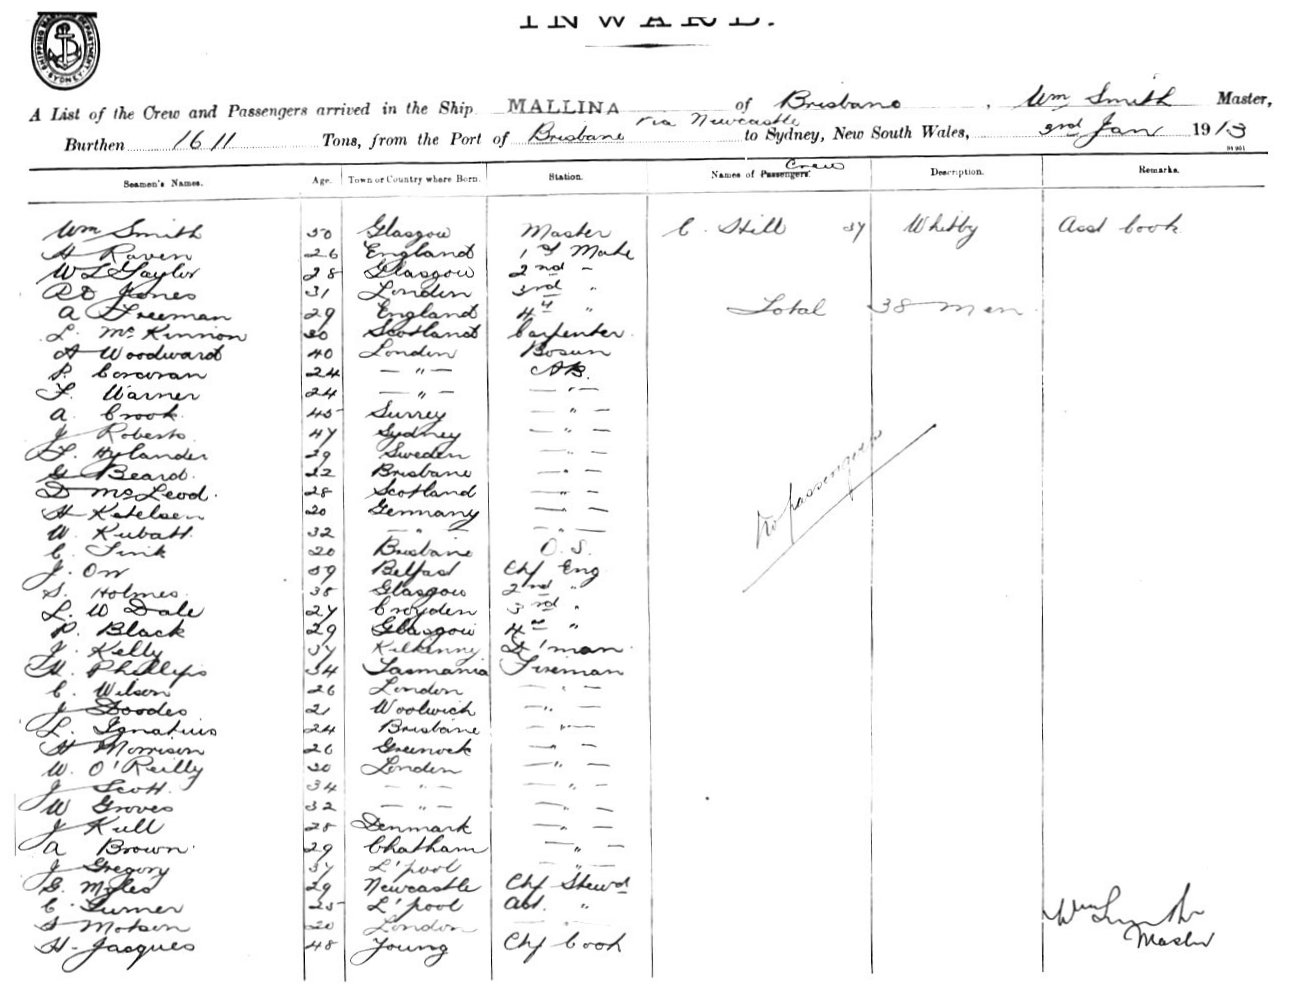 INWARD.
SHIPPING MASTER'S DEPARTMENT SYDNEY
A List of the Crew and Passengers arrived in the Ship MALLINA of Brisbane, Wm Smith Master,
Burthen 1611 Tons, from the Port of Brisbane via Newcastle to Sydney, New South Wales, 3rd Jan 1913
Seamen's Names. Age. Town or Country where Born. Station. Names of Passengers. Crew Description. Remarks.
Wm Smith 50 Glasgow Master C. Still 37 Whitby Asst Cook
H Raven 26 England 1st Mate
W L Taylor 28 Glasgow 2nd "
R D Jones 31 London 3rd "
A Freeman 29 England 4th "
L. McKinnon 30 Scotland Carpenter
A Woodward 40 London Bosun
P. Corcoran 24 — " — AB.
F. Warner 24 — " — — " —
A. Crook 45 Surrey — " —
J Roberts 47 Sydney — " —
F. Hylander 29 Sweden — " —
G Beard 22 Brisbane — " —
D McLeod. 28 Scotland — " —
H Ketelsen 20 Germany — " —
W. Kubatt. 32 — " — — " —
C. Fink 20 Brisbane O.S.
J. Orr 39 Belfast Chf Eng
S. Holmes 38 Glasgow 2nd "
L. W Dale 27 Croyden 3rd "
P. Black 29 Glasgow 4th "
J. Kelly 37 Kilkenny D'man
H. Phillips 34 Tasmania Fireman
C. Wilson 26 London — " —
J Doodes 21 Woolwich — " —
L. Ignatius 24 Brisbane — " —
H Morrison 26 Greenock — " —
W. O'Reilly 30 London — " —
J Scott. 34 — " — — " —
W Groves 32 — " — — " —
J Kull 28 Denmark — " —
A Brown. 29 Chatham — " —
J Gregory 37 L'pool — " —
G. Myles 29 Newcastle Chf Stewd
C. Turner 25 L'pool Ast. "
S Motson 20 London — " —
H. Jacques 48 Young Chf Cook
Total 38 Men
No passengers
Wm Smith
Master